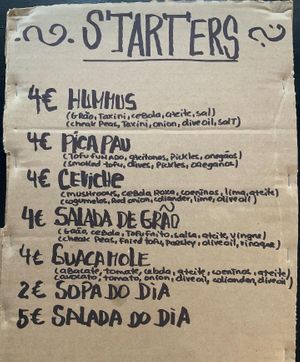 STARTERS
4€ HUMMUS
(Grão, Taxini, cebola, azeite, sal)
(cheak Peas, Taxini, onion, oliveoil, salt)
4€ PICA PAU
(Tofu fumado, azeitonas, Pickles, oregãos)
(smoked tofu, olives, Pickles, oreganos)
4€ CEVICHE
(mushrooms, cebola Roxa, coentros, lima, azeite)
(cogumelos, Red onion, coliander, lime, oliveoil)
4€ SALADA DE GRÃO
(Grão, cebola, Tofu frito, salsa, azeite, vingre)
(cheak Peas, Fried tofu, Parsley, oliveoil, vinaque)
4€ GUACAMOLE
(abacate, tomate, cebola, azeite, coentros, azeite)
(avocato, tomato, onion, oliveoil, coliander, oliveoil)
2€ SOPA DO DIA
5€ SALADA DO DIA